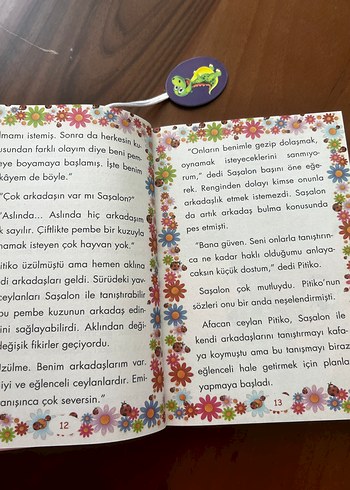 lmamı istemiş. Sonra da herkesin ku-
usundan farklı olayım diye beni pem-
eye boyamaya başlamış. İşte benim
kâyem de böyle."
"Çok arkadaşın var mı Saşalon?"
"Aslında... Aslında hiç arkadaşım
k sayılır. Çiftlikte pembe bir kuzuyla
namak isteyen çok hayvan yok."
Pitiko üzülmüştü ama hemen aklına
di arkadaşları geldi. Sürüdeki yav-
ceylanları Saşalon ile tanıştırabilir
bu pembe kuzunun arkadaş edin-
ini sağlayabilirdi. Aklından deği-
değişik fikirler geçiyordu.
Üzülme. Benim arkadaşlarım var.
iyi ve eğlenceli ceylanlardır. Emi-
anışınca çok seversin."
12
"Onların benimle gezip dolaşmak,
oynamak isteyeceklerini sanmıyo-
rum," dedi Saşalon başını öne eğe-
rek. Renginden dolayı kimse onunla
arkadaşlık etmek istemezdi. Saşalon
da artık arkadaş bulma konusunda
pes etmişti.
"Bana güven. Seni onlarla tanıştırın-
ca ne kadar haklı olduğumu anlaya-
caksın küçük dostum," dedi Pitiko.
Saşalon çok mutluydu. Pitiko'nun
sözleri onu bir anda neşelendirmişti.
Afacan ceylan Pitiko, Saşalon ile
kendi arkadaşlarını tanıştırmayı kafa-
ya koymuştu ama bu tanışmayı biraz
eğlenceli hale getirmek için planla
yapmaya başladı.
13